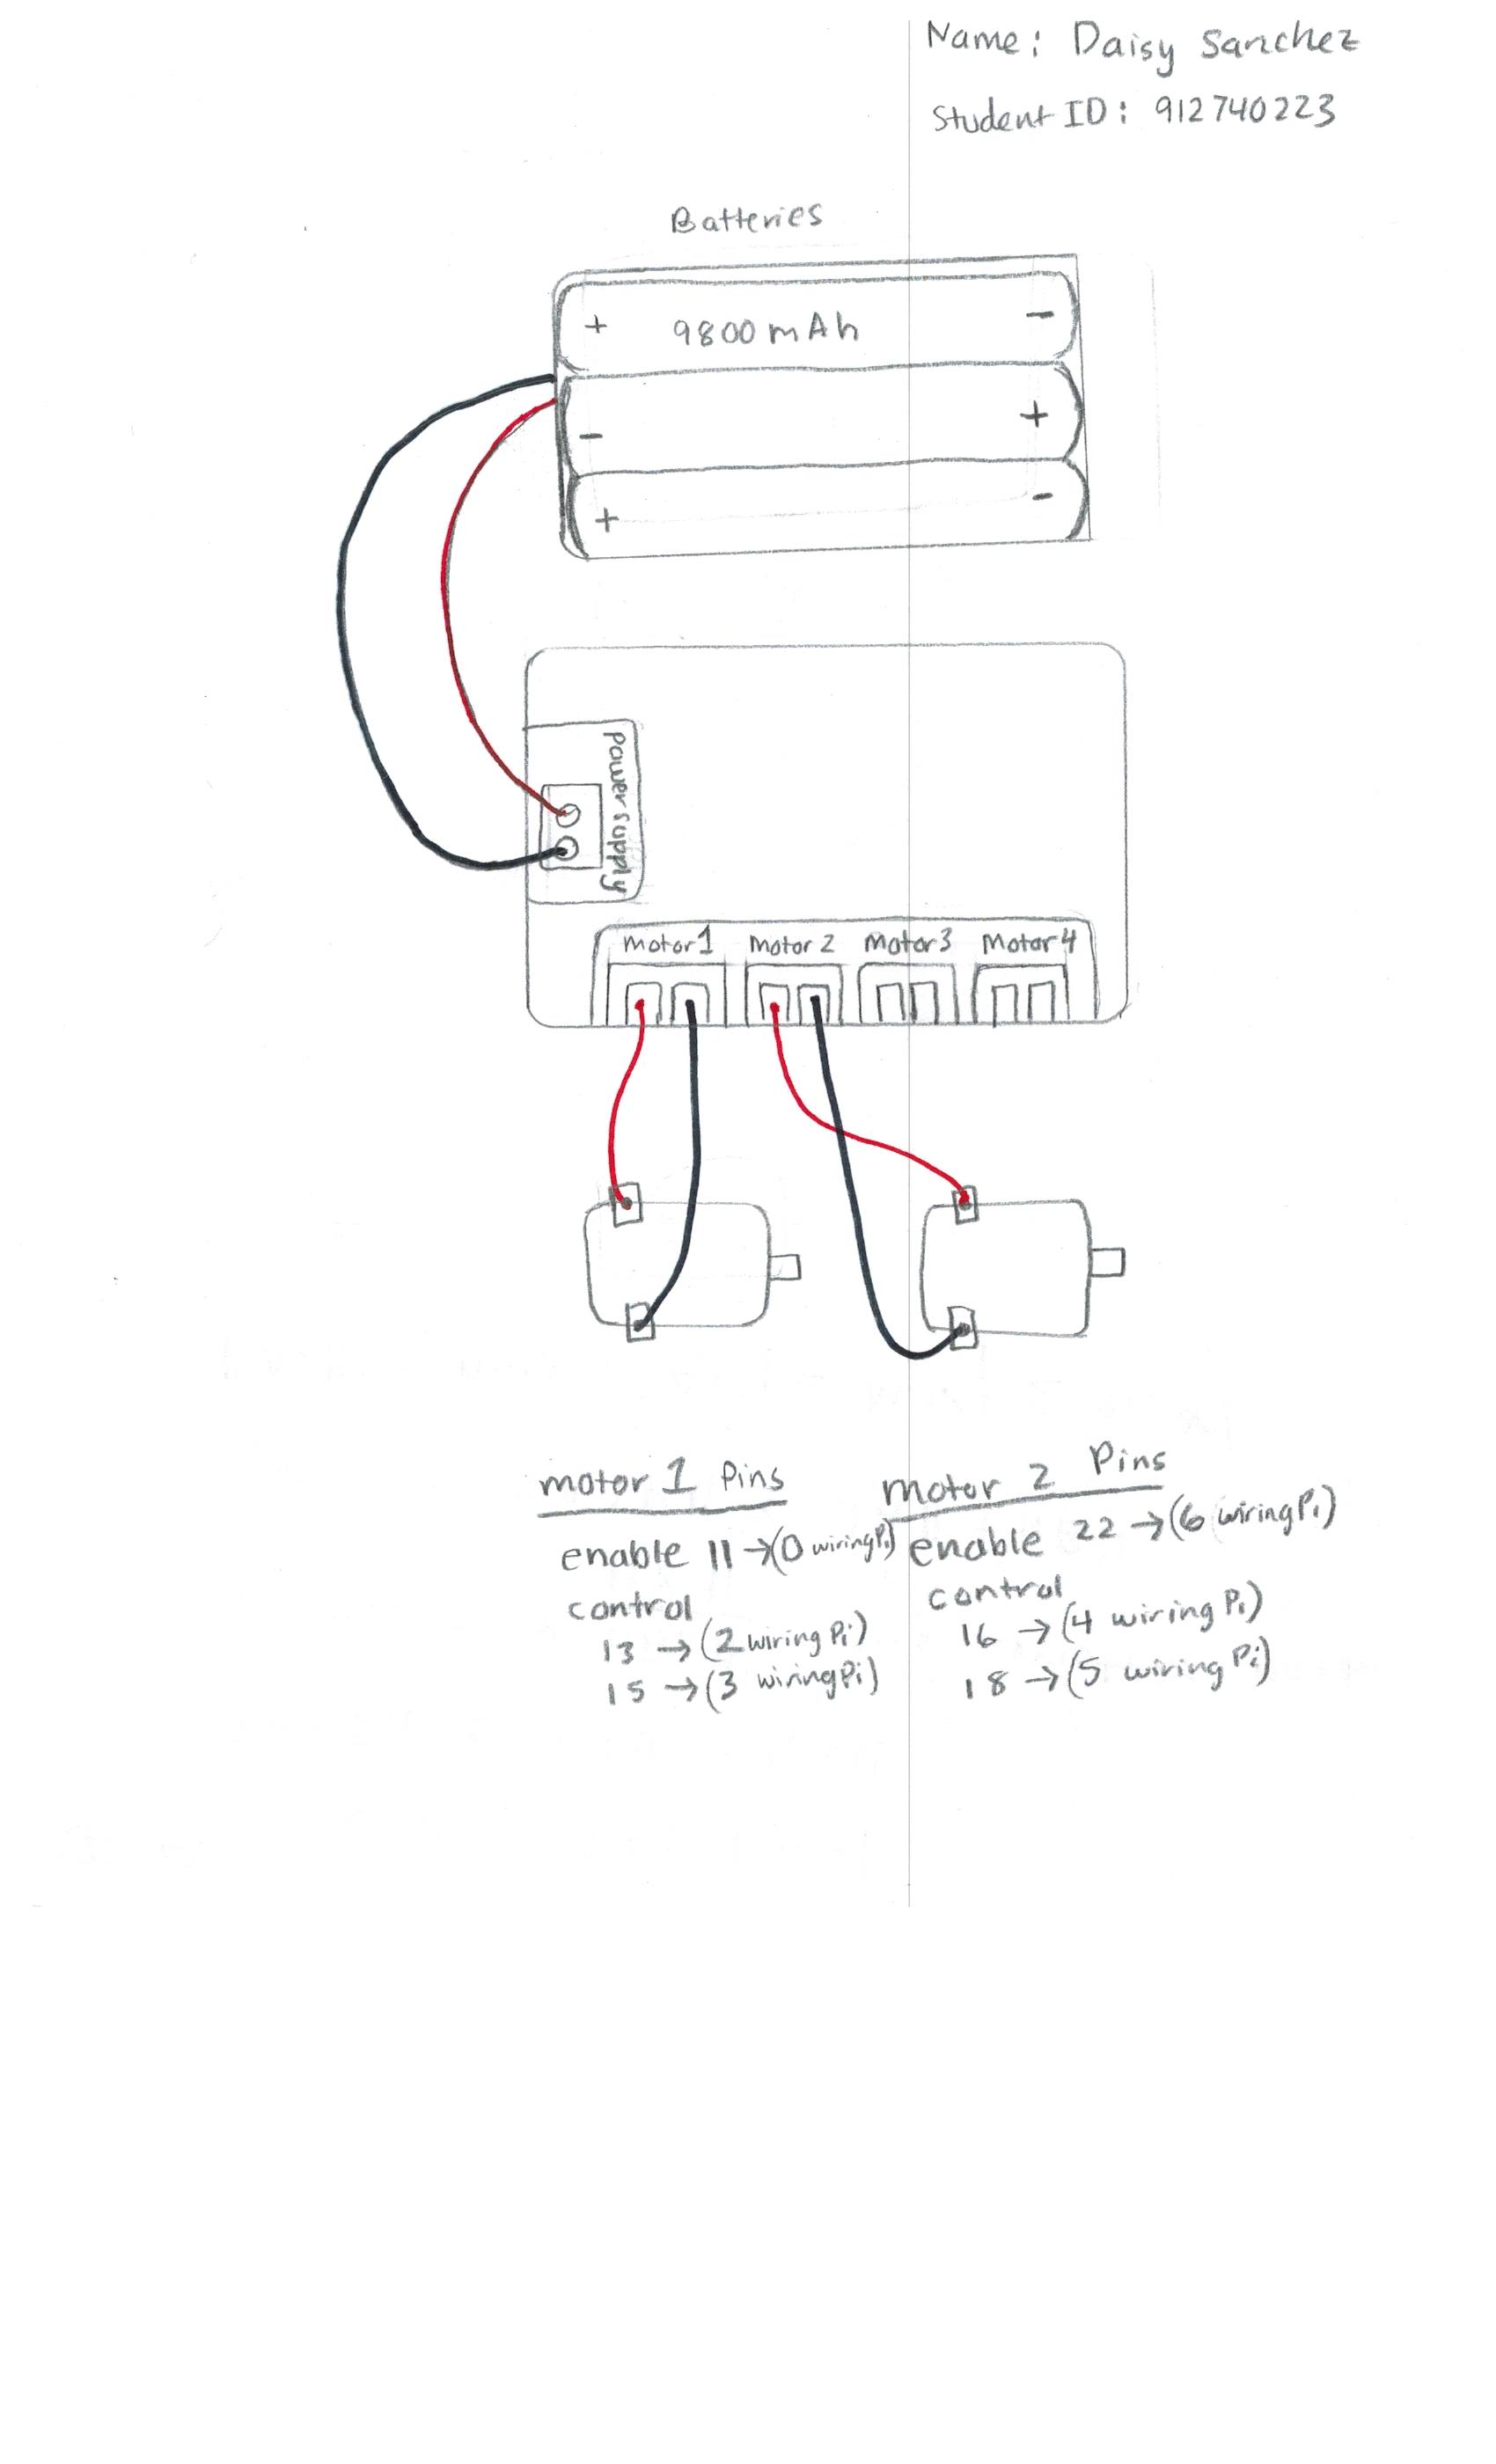 Name: Daisy Sanchez
Student ID: 912740223
Batteries
+ 9800 mAh -
- +
+ -
Power Supply
Motor 1 Motor 2 Motor 3 Motor 4
motor 1 Pins
enable 11 → (0 wiringPi)
control
13 → (2 wiring Pi)
15 → (3 wiringPi)
motor 2 Pins
enable 22 → (6 wiringPi)
control
16 → (4 wiring Pi)
18 → (5 wiring Pi)